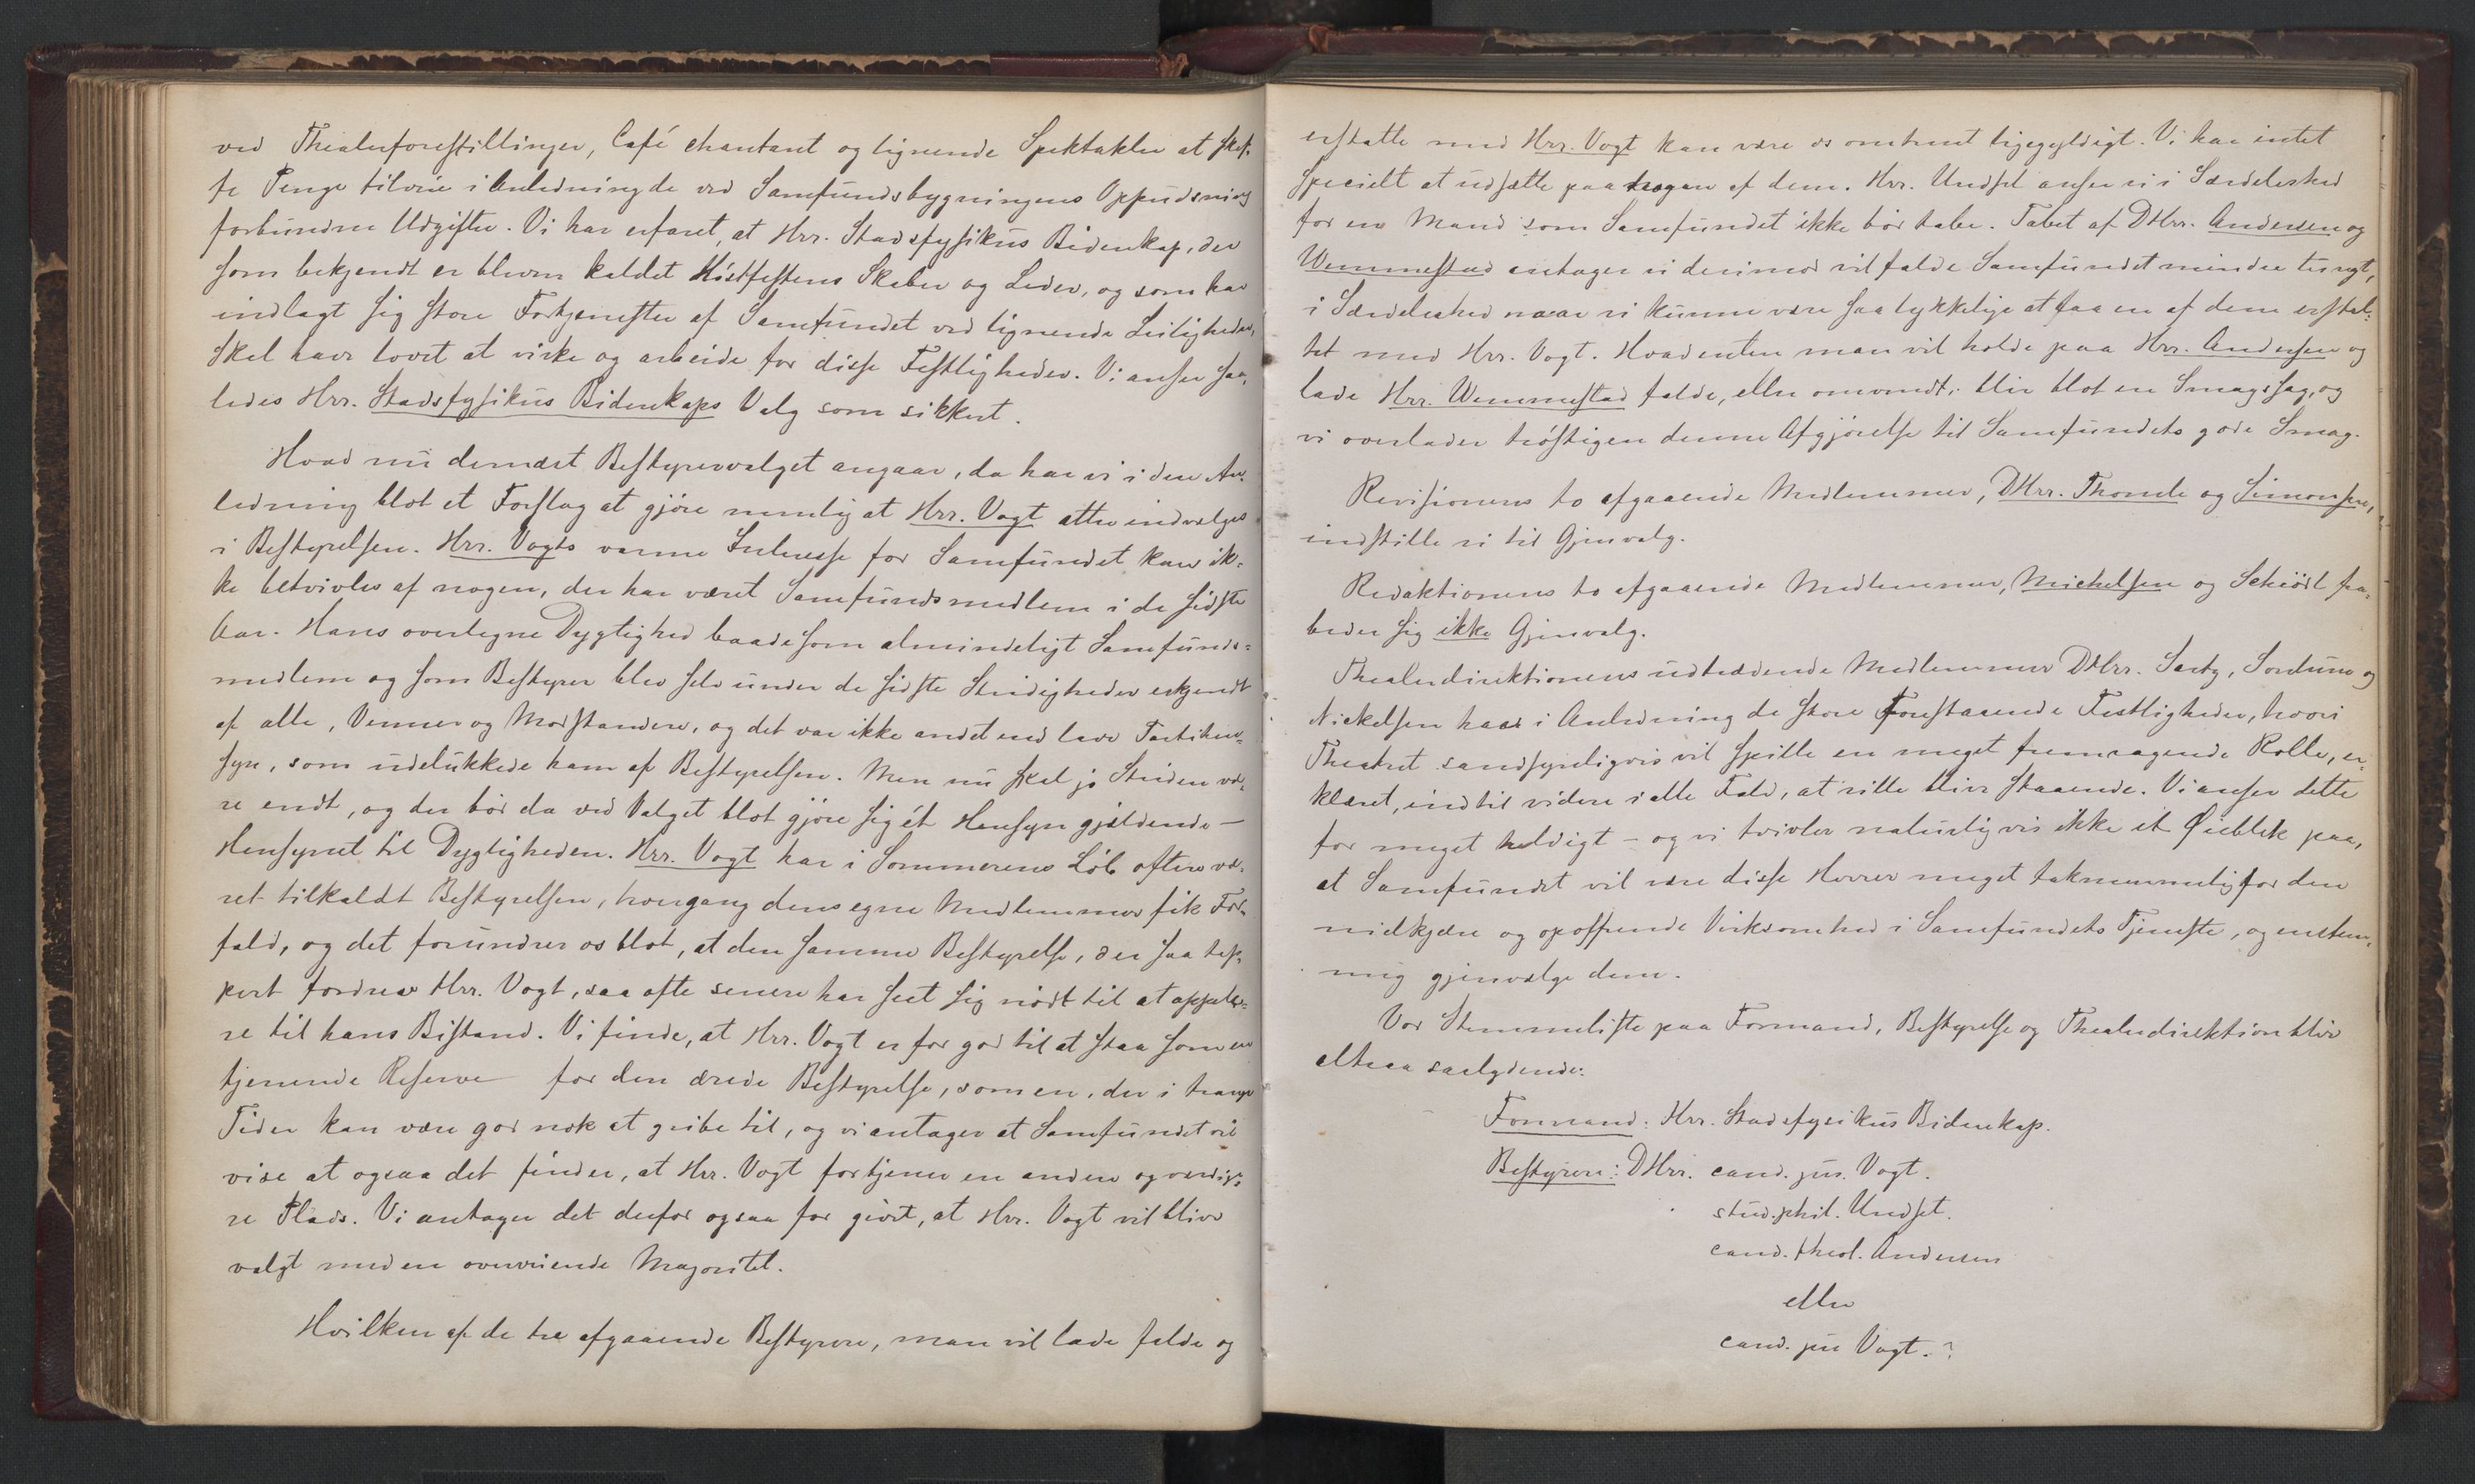 ved Theaterforestillinger, Café chantant og lignende Spektakler at skaf-
fe Penge tilveie i Anledning de ved Samfundsbygningens Oppudsning
forbundne Udgifter. Vi har erfaret, at Hrr. Stadsfysikus Bidenkap, der
som bekjendt er bleven kaldet Höstfestens Skaber og Leder, og som har
indlagt sig store Fortjenester af Samfundet ved lignende Leiligheder,
skal have lovet at virke og arbeide for disse Festligheder. Vi anser saa-
ledes Hrr. Stadsfysikus Bidenkaps Valg som sikkert.
Hvad nu dernæst Bestyrervalget angaar, da har vi i den An-
ledning blot et Forslag at gjöre nemlig at Hrr. Vogt atter indvælges
i Bestyrelsen. Hrr. Vogts varme Interesse for Samfundet kan ik-
ke betvivles af nogen, der har været Samfundsmedlem i de sidste
Aar. Hans overlegne Dygtighed baade som almindeligt Samfunds-
medlem og som Bestyrer blev selv under de sidste Stridigheder erkjendt
af alle, Venner og Modstandere, og det var ikke andet end lave Partihen-
syn, som udelukkede ham af Bestyrelsen. Men nu skal jo Striden væ-
re endt, og der bör da ved Valget blot gjöre sig ét Hensyn gjældende —
Hensynet til Dygtigheden. Hrr. Vogt har i Sommerens Löb oftere væ-
ret tilkaldt Bestyrelsen, hvergang dens egne Medlemmer fik For-
fald, og det forundrer os blot, at den samme Bestyrelse, der saa tap-
pert fordrev Hrr. Vogt, saa ofte senere har seet sig nödt til at appele-
re til hans Bistand. Vi finde, at Hrr. Vogt er for god til at staa som en
tjenende Reserve for den ærede Bestyrelse, som en, der i trange
Tider kan være god nok at gribe til, og vi antager at Samfundet vil
vise at ogsaa det finder, at Hrr. Vogt fortjener en anden og værdige-
re Plads. Vi antager det derfor ogsaa for givet, at Hrr. Vogt vil blive
valgt med en overveiende Majoritet.
Hvilken af de tre afgaaende Bestyrere, man vil lade falde og
erstatte med Hrr. Vogt kan være os omtrent ligegyldigt. Vi har intet
specielt at udsætte paa nogen af dem. Hrr. Undset anser vi i Særdeleshed
for en Mand som Samfundet ikke bör tabe. Tabet af DHrr. Andersen og
Wemmestad antager vi derimod vil falde Samfundet mindre tungt,
i Særdeleshed naar vi kunne være saa lykkelige at faa en af dem erstat-
tet med Hrr. Vogt. Hvadenten man vil holde paa Hrr. Andersen og
lade Hrr. Wemmestad falde, eller omvendt, blir blot en Smagssag, og
vi overlader tröstigen denne Afgjörelse til Samfundets gode Smag.
Revisionens to afgaaende Medlemmer, DHrr. Thomle og Simonsen,
indstille vi til Gjenvalg.
Redaktionens to afgaaende Medlemmer, Michelsen og Schiött fra-
beder sig ikke Gjenvalg.
Theaterdirektionens udtrædende Medlemmer DHrr. Sartz, Sordum og
Nickelsen have i Anledning de store forestaaende Festligheder, hvori
Theatret sandsynligvis vil spille en meget fremragende Rolle, er-
klæret, indtil videre i alle Fald, at ville blive staaende. Vi anser dette
for meget heldigt — og vi tvivler naturligvis ikke et Øieblik paa,
at Samfundet vil være disse Herrer meget taknemmelig for den
nidkjære og opoffrende Virksomhed i Samfundets Tjeneste, og enstem-
mig gjenvælge dem.
Vor Stemmeliste paa Formand, Bestyrelse og Theaterdirektion blir
altsaa saalydende:
Formand: Hrr. Stadsfysikus Bidenkap.
Bestyrere: DHrr. cand. jur. Vogt.
stud. phil. Undset.
cand. theol. Andersen
eller
cand. jur Vogt. ?